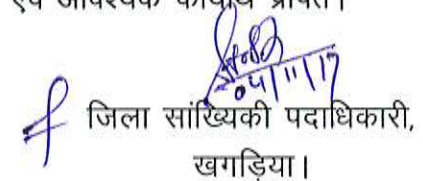 एवं आवश्यक कार्यार्थ प्रेषित।
04/11/17
जिला सांख्यिकी पदाधिकारी,
खगड़िया।